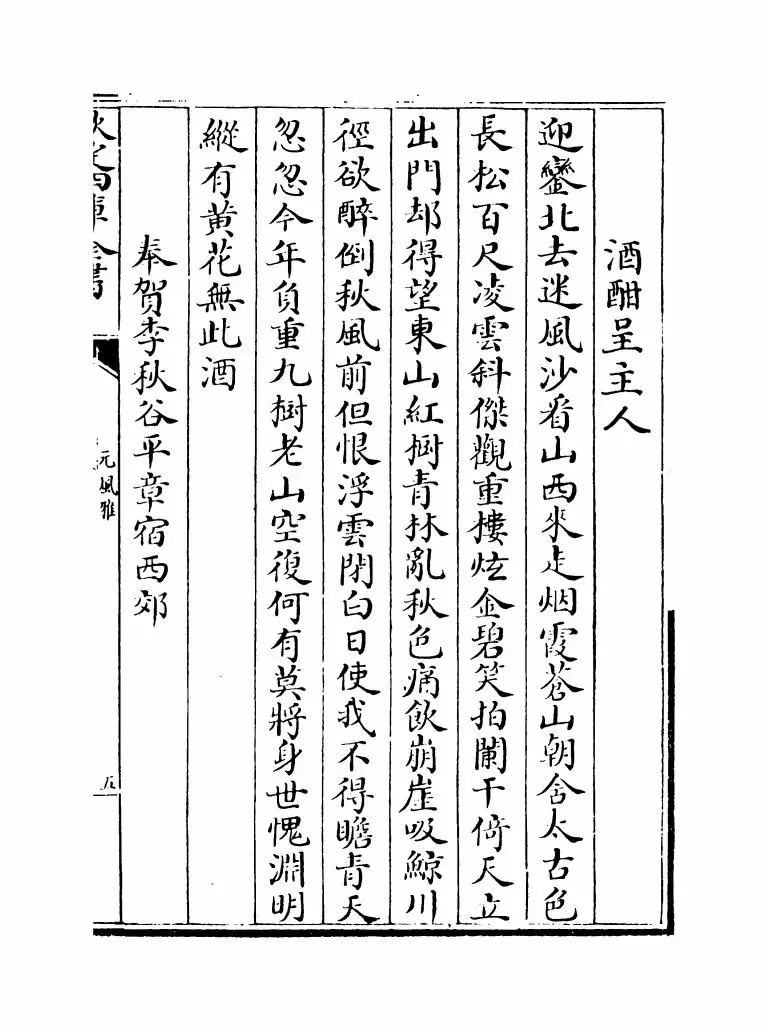 酒酣呈主人
迎鑾北去迷風沙看山西來走烟霞蒼山朝含太古色
長松百尺凌雲斜傑觀重樓炫金碧笑拍闌干倚天立
出門却得望東山紅樹青林亂秋色痛飲崩崖吸鯨川
徑欲醉倒秋風前但恨浮雲閉白日使我不得瞻青天
忽忽今年負重九樹老山空復何有莫將身世愧淵明
縱有黄花無此酒
奉賀李秋谷平章宿西郊
欽定四庫全書
元風雅
五